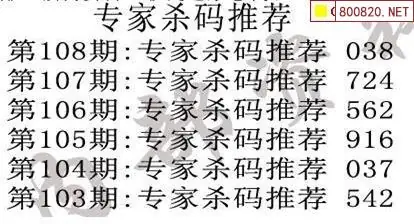 专家杀码推荐
800820.NET
第108期:专家杀码推荐 038
第107期:专家杀码推荐 724
第106期:专家杀码推荐 562
第105期:专家杀码推荐 916
第104期:专家杀码推荐 037
第103期:专家杀码推荐 542